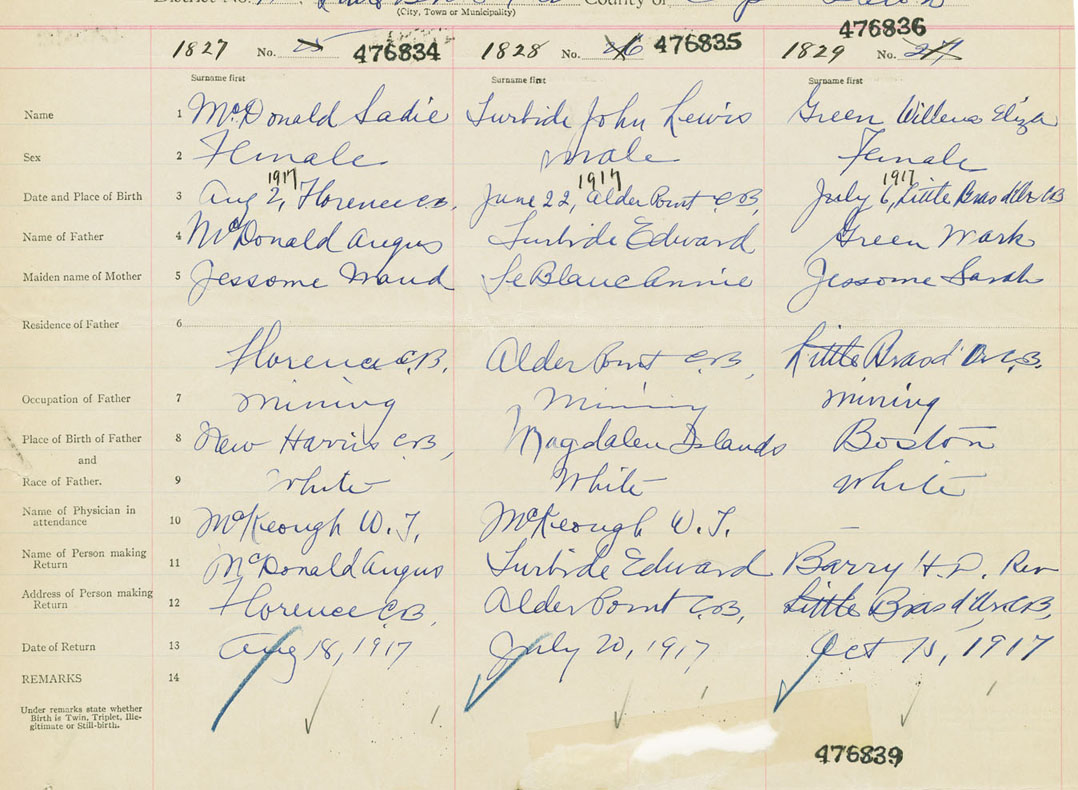 District No. County of
(City, Town or Municipality)
476836
1827 No. 25 476834 1828 No. 26 476835 1829 No. 27
Surname first Surname first Surname first
Name 1 McDonald Sadie Turbide John Lewis Green Willena Eliza
Sex 2 Female male Female
1917 1917 1917
Date and Place of Birth 3 Aug 2, Florence C.B. June 22, Alder Point C.B, July 6, Little Bras d'Or C.B
Name of Father 4 McDonald Angus Turbide Edward Green Mark
Maiden name of Mother 5 Jessome Maud LeBlanc Annie Jessome Sarah
Residence of Father 6
Florence C.B. Alder Point C.B, Little Bras d'Or C.B.
Occupation of Father 7 mining Mining mining
Place of Birth of Father 8 New Harris C.B, Magdalen Islands Boston
and
Race of Father. 9 White White White
Name of Physician in
attendance 10 McKeough W. J. McKeough W. J. –
Name of Person making
Return 11 McDonald Angus Turbide Edward Barry H.D. Rev
Address of Person making
Return 12 Florence C.B, Alder Point C.B, Little Bras d'Or C.B,
Date of Return 13 Aug 18, 1917 July 20, 1917 Oct 15, 1917
REMARKS 14
Under remarks state whether
Birth is Twin, Triplet, Ille-
gitimate or Still-birth.
476839